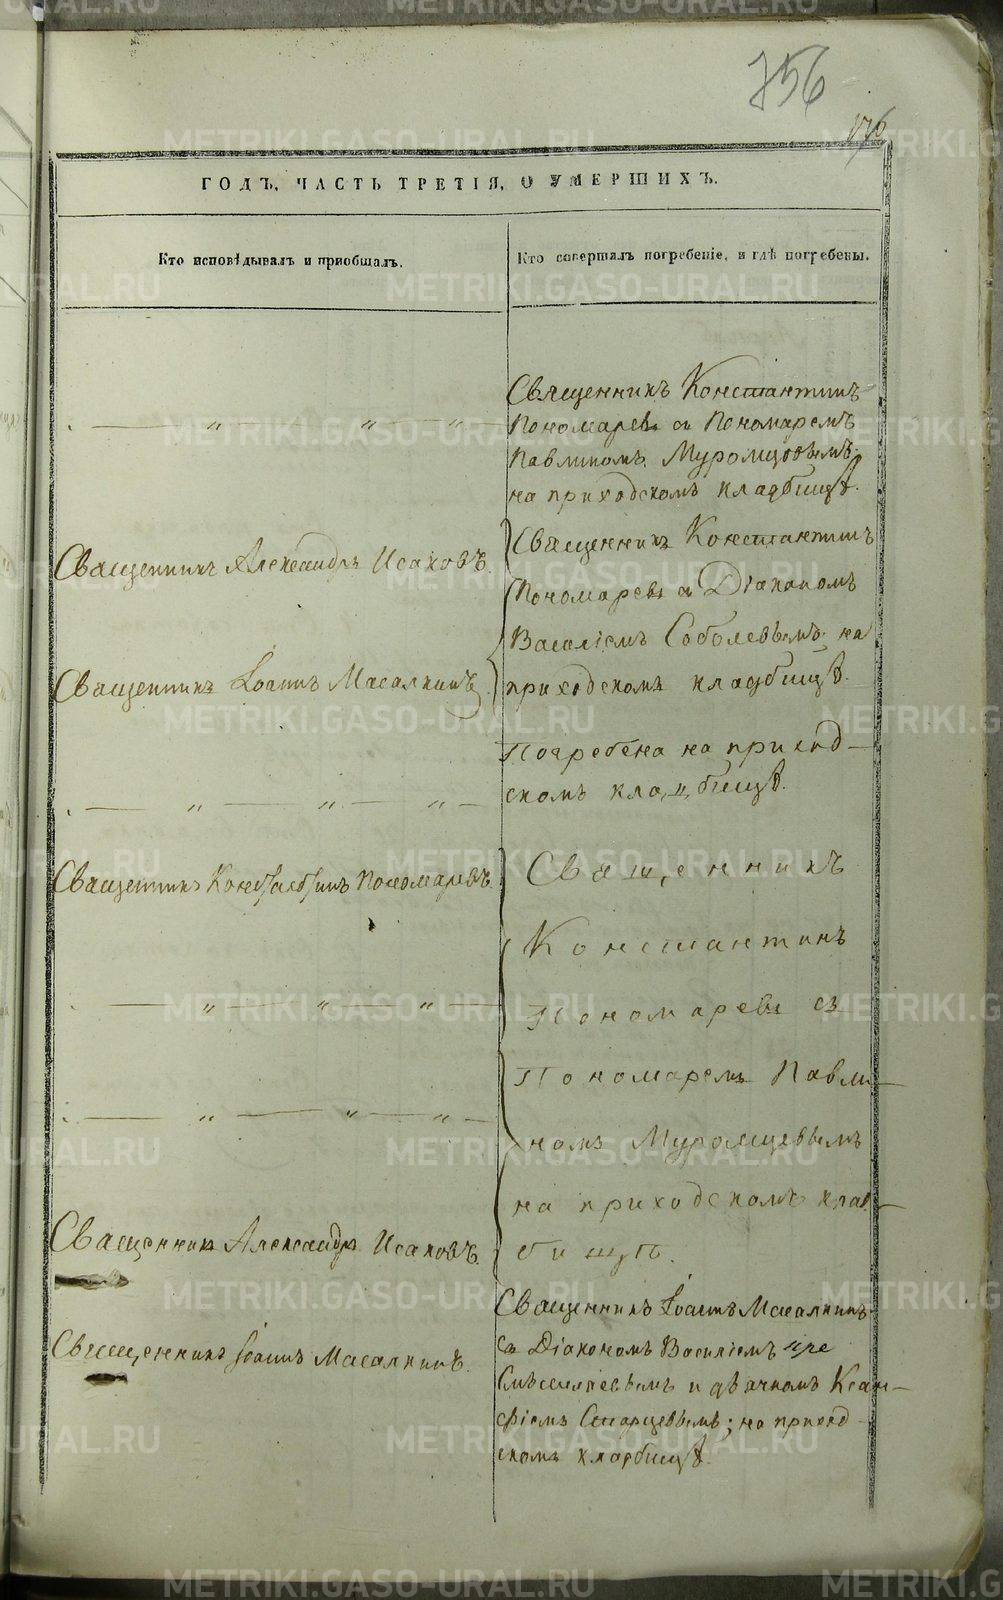 756
176
ГОДЪ, ЧАСТЬ ТРЕТІЯ, О УМЕРШИХЪ.
Кто исповѣдывалъ и приобщалъ.
Кто совершалъ погребеніе, и гдѣ погребены.
Священникъ Константинъ
Пономаревъ съ Пономаремъ
Павлиномъ Муромцовымъ
на приходскомъ кладбищѣ.
Священникъ Александръ Исаковъ.
Священникъ Іоаннъ Масалкинъ
Священникъ Константинъ
Пономаревъ съ Діакономъ
Василіемъ Соболевымъ на
приходскомъ кладбищѣ.
Погребена на приход-
скомъ кладбищѣ.
Священникъ Константинъ Пономаревъ.
Священникъ Александръ Исаковъ.
Священникъ
Константинъ
Пономаревъ съ
Пономаремъ Павли-
номъ Муромцевымъ
на приходскомъ клад-
бищѣ.
Священникъ Іоаннъ Масалкинъ.
Священникъ Іоаннъ Масалкинъ
съ Діакономъ Василіемъ
и дьячкомъ Ксан-
фіемъ Старцевымъ; на приход-
скомъ кладбищѣ.
METRIKI.GASO-URAL.RU